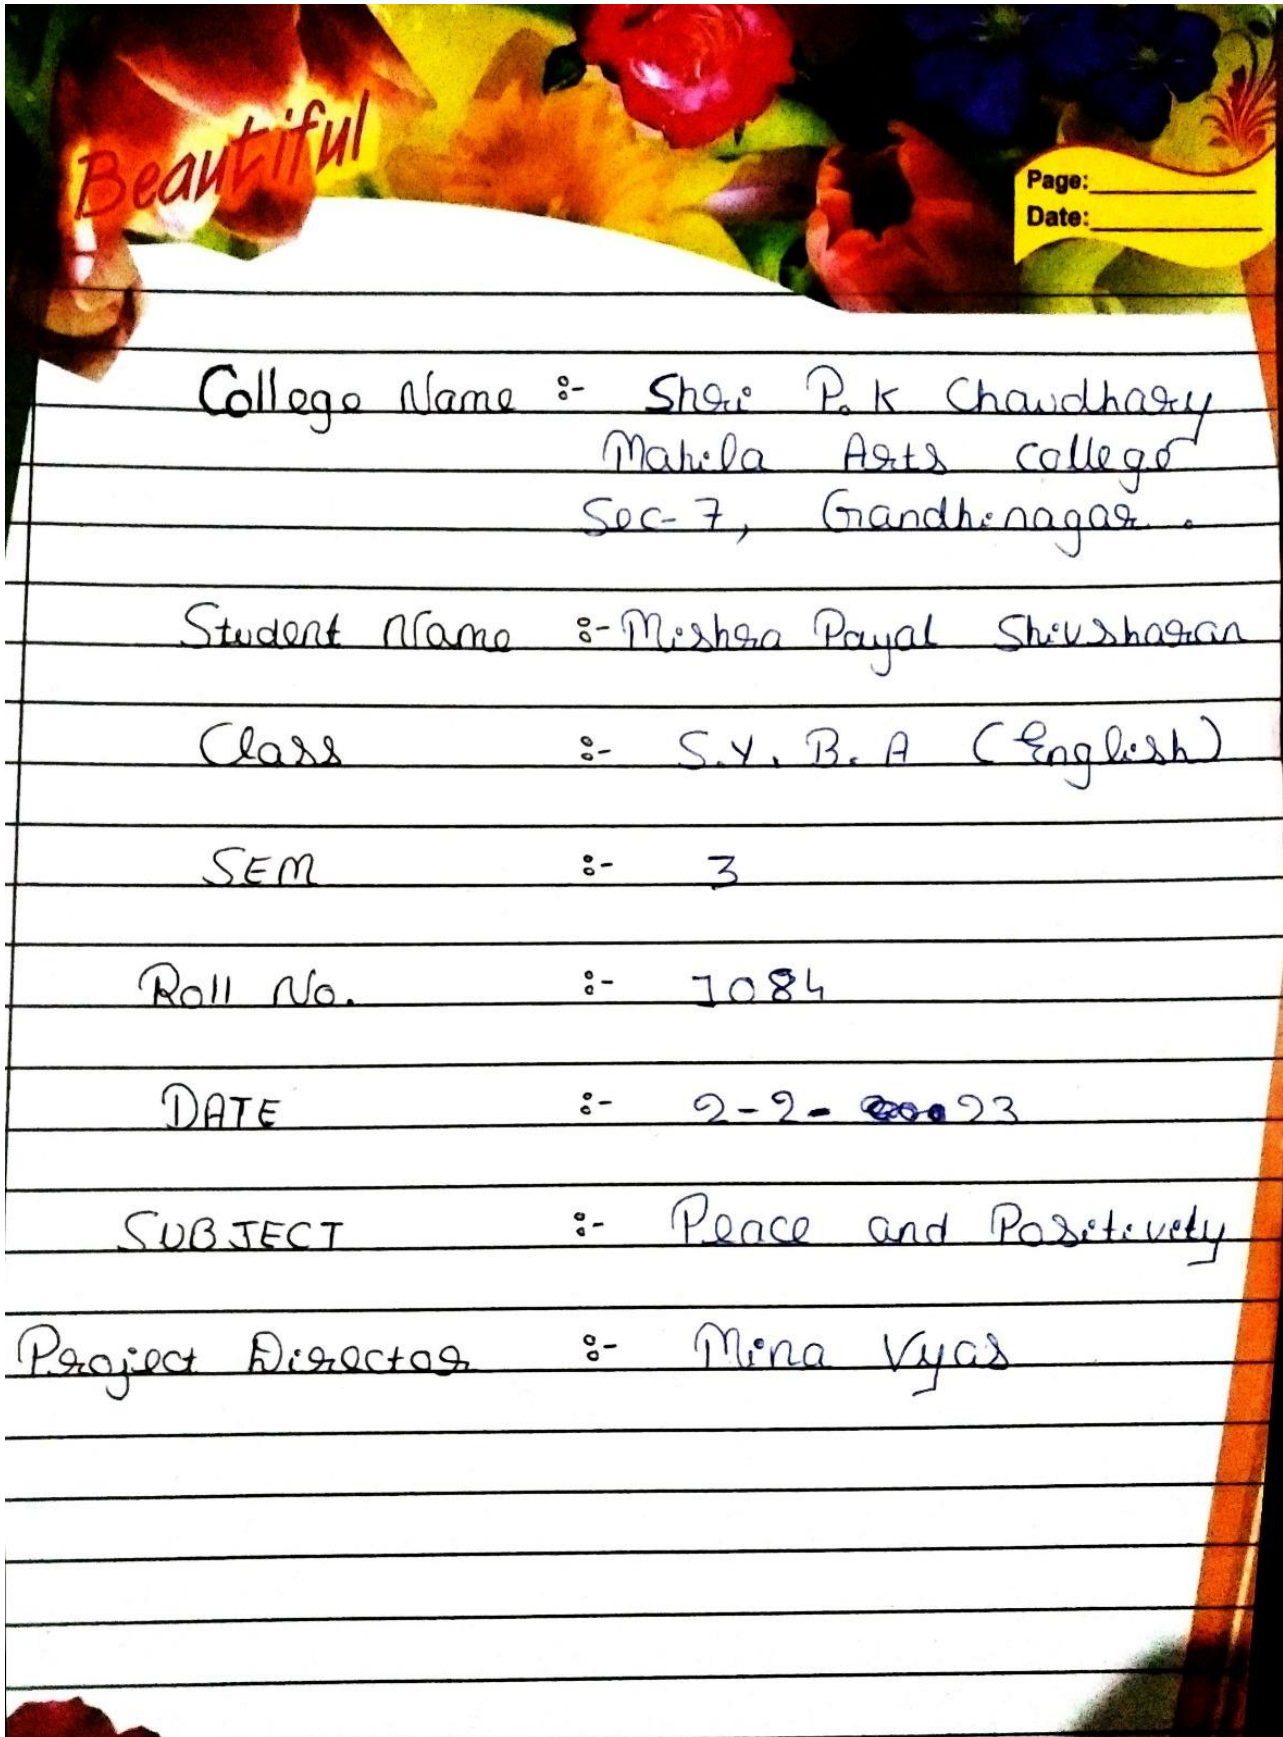 Beautiful
Page:
Date:
College Name :- Shri P. K Chaudhary
Mahila Arts college
Sec-7, Gandhinagar.
Student Name :- Mishra Payal Shivsharan
Class :- S.Y. B. A (English)
SEM :- 3
Roll No. :- 1084
DATE :- 2-2- 23
SUBJECT :- Peace and Positivety
Project Director :- Mina Vyas